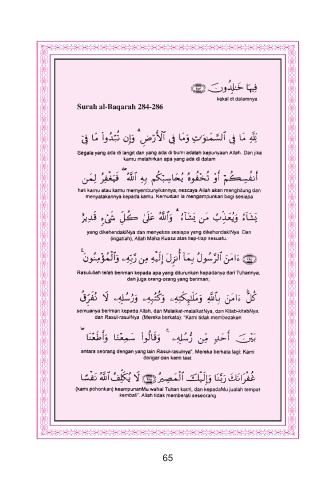 فِيهَا خَـٰلِدُونَ ﴿٢٥٧﴾
kekal di dalamnya
Surah al-Baqarah 284-286
لِّلَّهِ مَا فِى ٱلسَّمَـٰوَٰتِ وَمَا فِى ٱلْأَرْضِ ۗ وَإِن تُبْدُوا۟ مَا فِىٓ
Segala yang ada di langit dan yang ada di bumi adalah kepunyaan Allah. Dan jika
kamu melahirkan apa yang ada di dalam
أَنفُسِكُمْ أَوْ تُخْفُوهُ يُحَاسِبْكُم بِهِ ٱللَّهُ ۖ فَيَغْفِرُ لِمَن
hati kamu atau kamu menyembunyikannya, nescaya Allah akan menghitung dan
menyatakannya kepada kamu. Kemudian Ia mengampunkan bagi sesiapa
يَشَآءُ وَيُعَذِّبُ مَن يَشَآءُ ۗ وَٱللَّهُ عَلَىٰ كُلِّ شَىْءٍ قَدِيرٌ
yang dikehendakiNya dan menyeksa sesiapa yang dikehendakiNya Dan
(ingatlah), Allah Maha Kuasa atas tiap-tiap sesuatu.
﴿٢٨٤﴾ ءَامَنَ ٱلرَّسُولُ بِمَآ أُنزِلَ إِلَيْهِ مِن رَّبِّهِۦ وَٱلْمُؤْمِنُونَ ۚ
Rasulullah telah beriman kepada apa yang diturunkan kepadanya dari Tuhannya,
dan juga orang-orang yang beriman;
كُلٌّ ءَامَنَ بِٱللَّهِ وَمَلَـٰٓئِكَتِهِۦ وَكُتُبِهِۦ وَرُسُلِهِۦ لَا نُفَرِّقُ
semuanya beriman kepada Allah, dan Malaikat-malaikatNya, dan Kitab-kitabNya,
dan Rasul-rasulNya. (Mereka berkata): "Kami tidak membezakan
بَيْنَ أَحَدٍ مِّن رُّسُلِهِۦ ۚ وَقَالُوا۟ سَمِعْنَا وَأَطَعْنَا ۖ
antara seorang dengan yang lain Rasul-rasulnya". Mereka berkata lagi: Kami
dengar dan kami taat
غُفْرَانَكَ رَبَّنَا وَإِلَيْكَ ٱلْمَصِيرُ ﴿٢٨٥﴾ لَا يُكَلِّفُ ٱللَّهُ نَفْسًا
(kami pohonkan) keampunanMu wahai Tuhan kami, dan kepadaMu jualah tempat
kembali". Allah tidak memberati seseorang
65